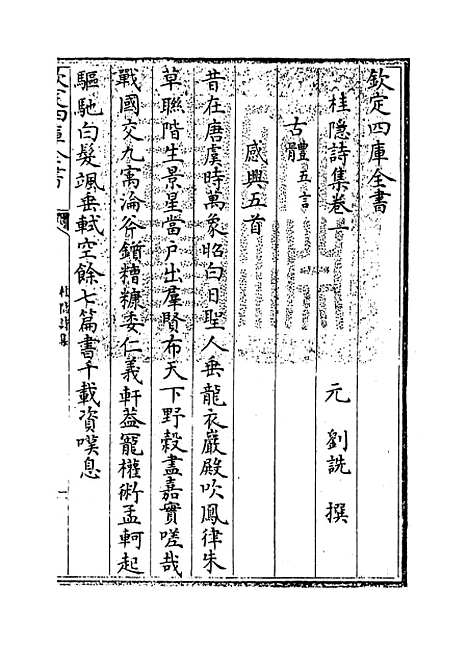 欽定四庫全書
桂隱詩集卷一
元 劉詵 撰
古體五言
感興五首
昔在唐虞時萬象昭白日聖人垂龍衣巖殿吹鳳律朱
草聯階生景星當戶出羣賢布天下野穀盡嘉實嗟哉
戰國交九㝢淪斧鑕糟糠委仁義軒葢寵權術孟軻起
驅馳白髮颯垂軾空餘七篇書千載資嘆息
欽定四庫全書
桂隱詩集
一